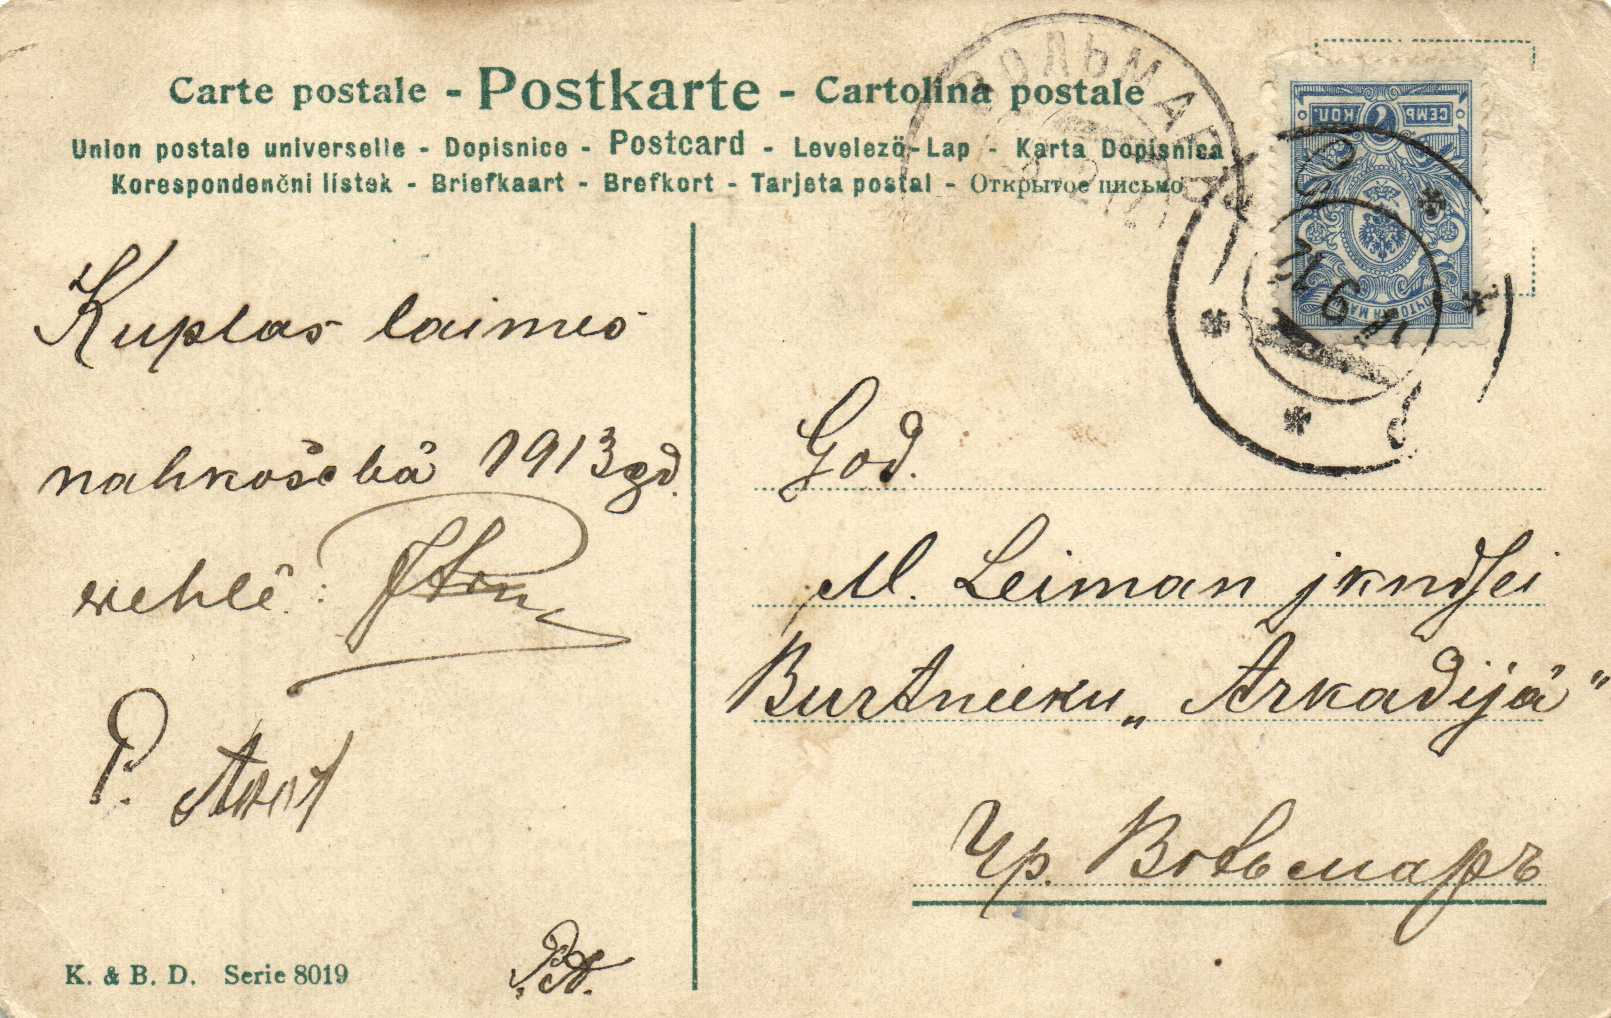 Carte postale - Postkarte - Cartolina postale
Union postale universelle - Dopisnice - Postcard - Levelező-Lap - Karta Dopisnica
Korespondenčni lístek - Briefkaart - Brefkort - Tarjeta postal - Открытое письмо
ВОЛЬМАРЪ
СЕМЬ КОП
7
ПОЧТОВАЯ МАРКА
Kuplas laimes
nahkošchā 1913 gd.
wehlē:
P.
P.A.
God.
M. Leiman jkndſei
Burtneeku „Arkadijā“
Чр. Вольмаръ
K. & B. D. Serie 8019